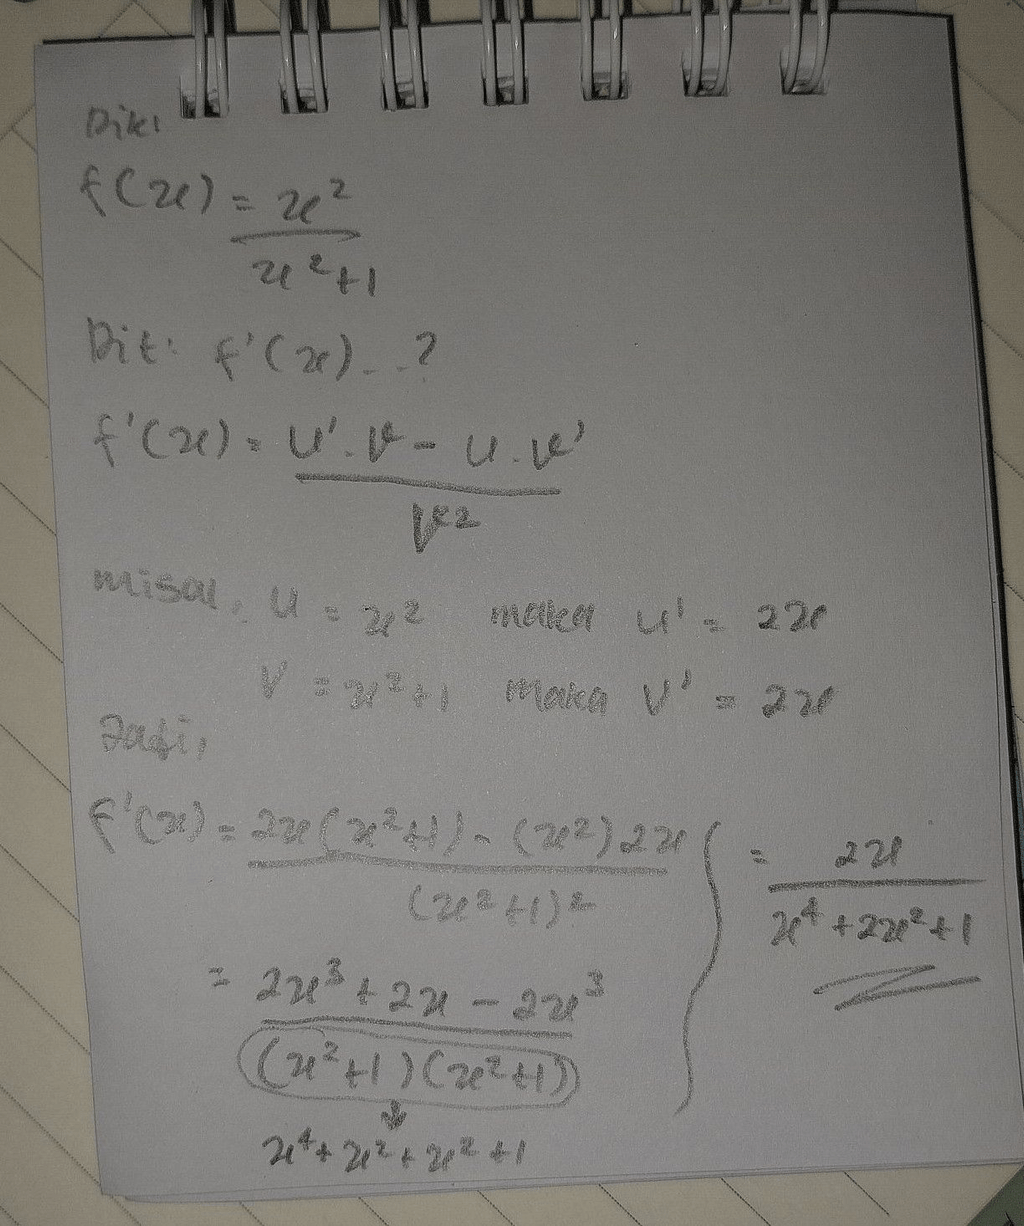 Dik:
f(x) = x²
x²+1
Dit: f'(x)...?
f'(x) = u'.v - u.v'
v²
misal, u = x² maka u' = 2x
v = x²+1 maka v' = 2x
Jadi,
f'(x) = 2x(x²+1) - (x²)2x
(x²+1)²
= 2x³ + 2x - 2x³
(x²+1)(x²+1)
↓
x⁴+x²+x²+1
= 2x
x⁴+2x²+1